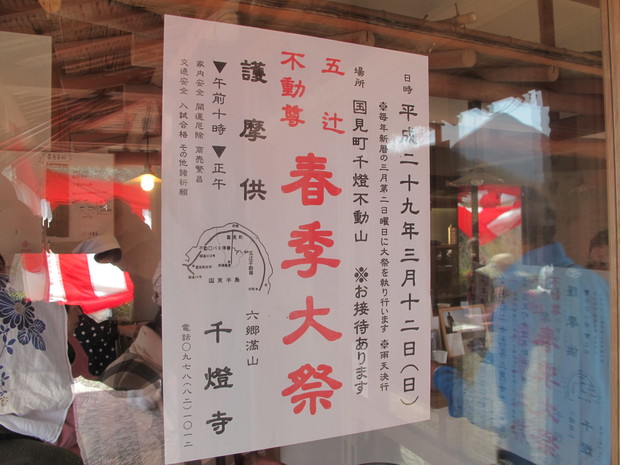 日時 平成二十九年三月十二日(日)
※毎年新暦の三月第二日曜日に大祭を執り行います ※雨天決行
場所 国見町千燈不動山 ※お接待あります
五辻
不動尊
春季大祭
護摩供
▼午前十時 ▼正午
家内安全 開運厄除 商売繁昌
交通安全 入試合格 その他諸祈願
国東半島
六郷満山
千燈寺
電話〇九七八(八二)一〇一二